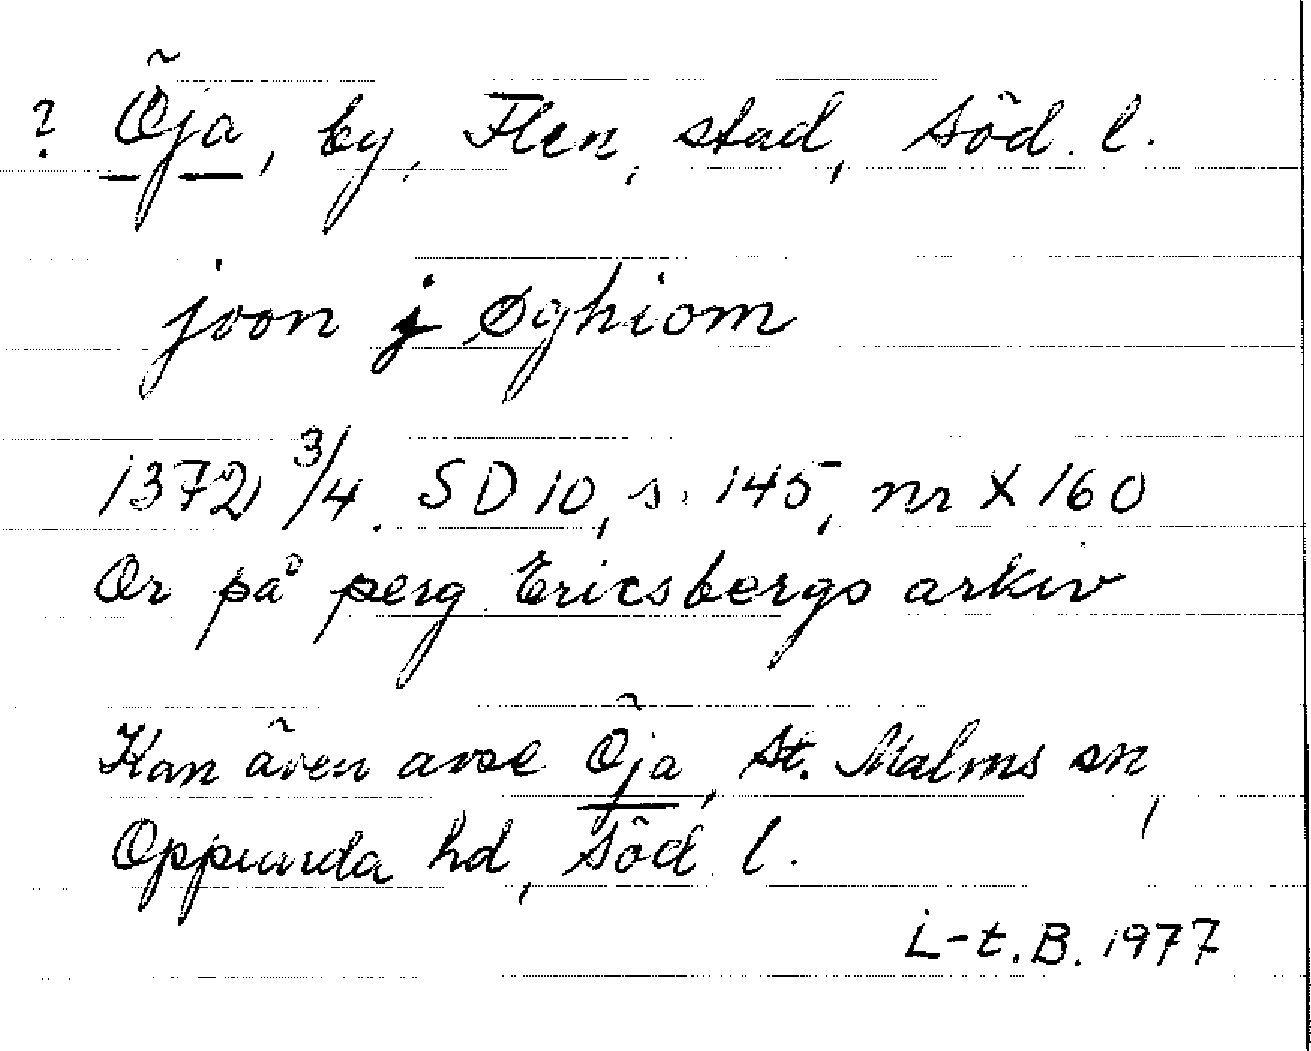 ? Öja, by, Flen, stad, Söd. l.
joon j Øghiom
1372 3/4. SD 10, s. 145, nr X 160
Or på perg. Ericsbergs arkiv
Kan även avse Öja, St. Malms sn,
Oppunda hd, Söd. l.
L-t. B. 1977